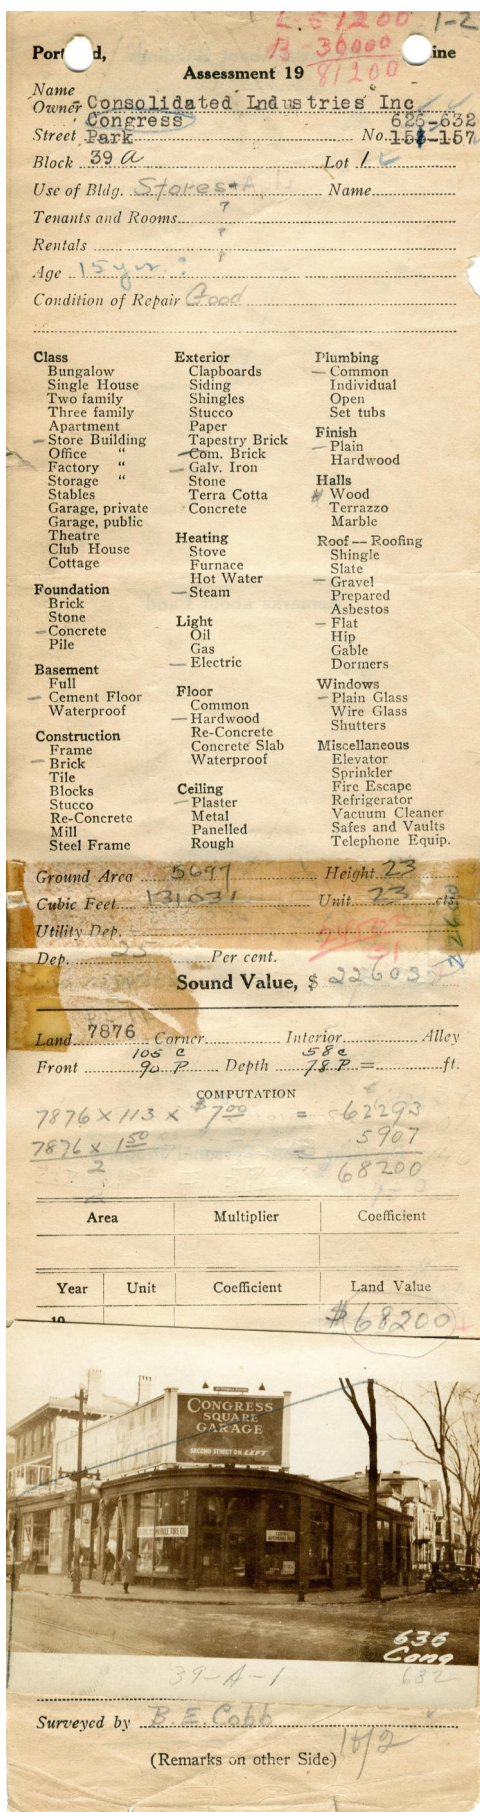 L-51200 1-2
B-30000
81200
Port d, ine
Assessment 19
Name
Owner Consolidated Industries Inc
Congress 626-632
Street Park No. 151-157
Block 39 A Lot 1
Use of Bldg. Stores + Name
Tenants and Rooms ?
Rentals ?
Age 15 yrs. ?
Condition of Repair Good
Class
Bungalow
Single House
Two family
Three family
Apartment
Store Building
Office "
Factory "
Storage "
Stables
Garage, private
Garage, public
Theatre
Club House
Cottage
Foundation
Brick
Stone
Concrete
Pile
Basement
Full
Cement Floor
Waterproof
Construction
Frame
Brick
Tile
Blocks
Stucco
Re-Concrete
Mill
Steel Frame
Exterior
Clapboards
Siding
Shingles
Stucco
Paper
Tapestry Brick
Com. Brick
Galv. Iron
Stone
Terra Cotta
Concrete
Heating
Stove
Furnace
Hot Water
Steam
Light
Oil
Gas
Electric
Floor
Common
Hardwood
Re-Concrete
Concrete Slab
Waterproof
Ceiling
Plaster
Metal
Panelled
Rough
Plumbing
Common
Individual
Open
Set tubs
Finish
Plain
Hardwood
Halls
Wood
Terrazzo
Marble
Roof — Roofing
Shingle
Slate
Gravel
Prepared
Asbestos
Flat
Hip
Gable
Dormers
Windows
Plain Glass
Wire Glass
Shutters
Miscellaneous
Elevator
Sprinkler
Fire Escape
Refrigerator
Vacuum Cleaner
Safes and Vaults
Telephone Equip.
Ground Area 5697 Height 23
Cubic Feet 131031 Unit 23 cts.
Utility Dep.
Dep. 25 Per cent.
Sound Value, $ 22603
Land 7876 Corner Interior Alley
105 c 58 c
Front 90 P Depth 78 P = ft.
COMPUTATION
7876 × 113 × $7.00 = 62293
7876 × 1.50 = 5907
2 $68200
Area Multiplier Coefficient
Year Unit Coefficient Land Value
19 $68200
CONGRESS
SQUARE
GARAGE
SECOND STREET ON LEFT
TIRE CO.
636
Cong
39-A-1 632
Surveyed by B. E. Cobb
(Remarks on other Side)